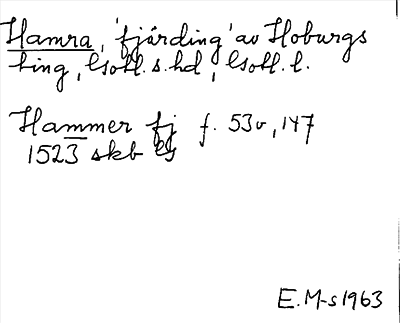 Hamra, 'fjärding' av Hoburgs
ting, Gotl. s. hd, Gotl. l.
Hammer fj f. 53v, 147
1523 skb
E. M-s 1963